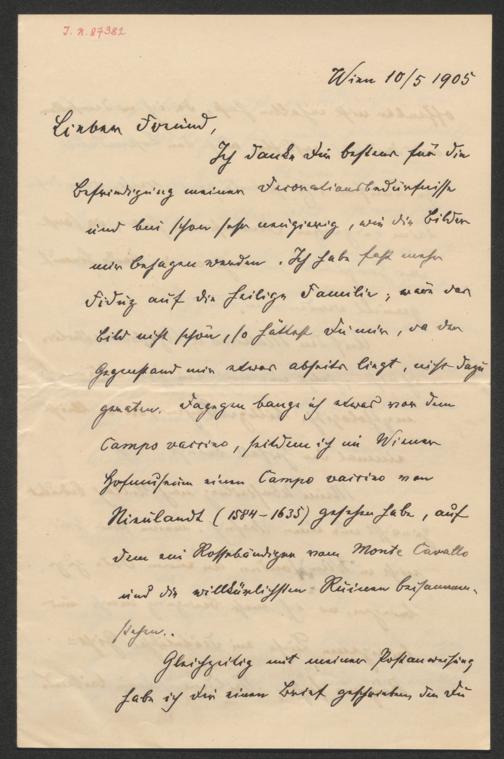 J. N. 87382
Wien 10/5 1905
Lieber Freund,
Ich danke Dir bestens für die
Befriedigung meiner Decorationsbedürfnisse
und bin schon sehr neugierig, wie die Bilder
mir behagen werden. Ich habe fast mehr
Fiduz auf die heilige Familie; wäre das
Bild nicht schön, so hättest Du mir, da der
Gegenstand mir etwas abseits liegt, nicht dazu
geraten. Dagegen bange ich etwas vor dem
Campo vaccino, seitdem ich im Wiener
Hofmuseum einen Campo vaccino von
Nieulandt (1584-1635) gesehen habe, auf
dem ein Rossebändiger vom Monte Cavallo
und die willkürlichsten Ruinen beisammen-
stehen..
Gleichzeitig mit meiner Postanweisung
habe ich Dir einen Brief geschrieben, den Du